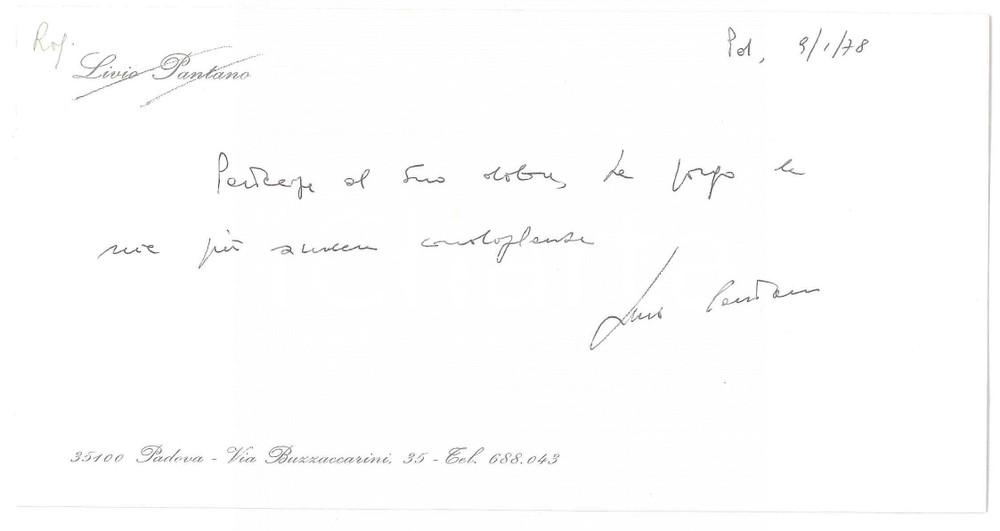 Prof.
Livio Pantano
Pd, 9/1/78
Partecipe al Suo dolore, Le porgo le
mie più sincere condoglianze
Livio Pantano
35100 Padova - Via Buzzaccarini, 35 - Tel. 688.043